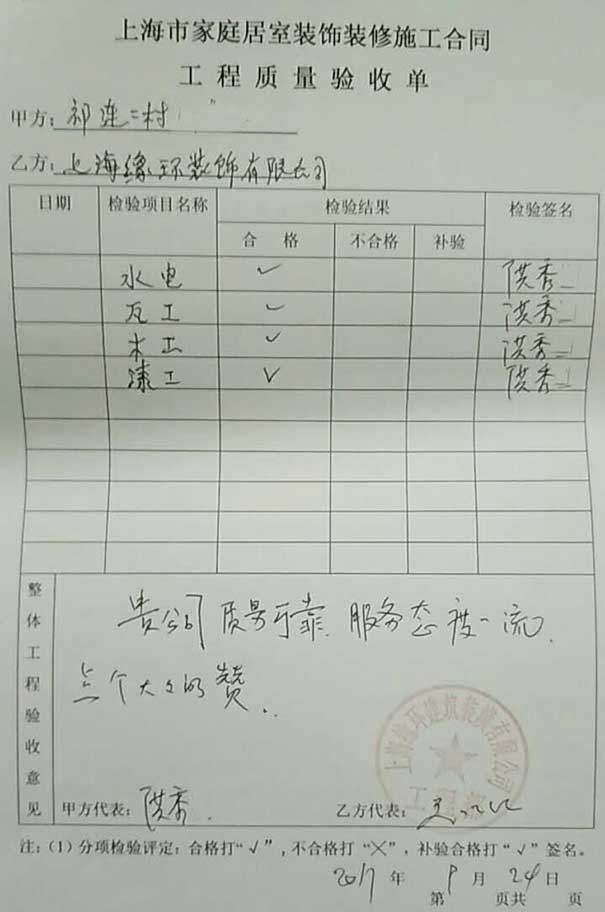 上海市家庭居室装饰装修施工合同
工程质量验收单
甲方：祁连二村
乙方：上海缘环装饰有限公司
日期 检验项目名称 检验结果 检验签名
合格 不合格 补验
水电 ✓ 洪秀
瓦工 ✓ 洪秀
木工 ✓ 洪秀
漆工 ✓ 洪秀
整体工程验收意见
贵公司质量可靠 服务态度一流.
点个大大的赞..
甲方代表：洪秀.
乙方代表：
注：(1) 分项检验评定：合格打“√”，不合格打“╳”，补验合格打“√”签名。
2017年9月24日
第 页共 页